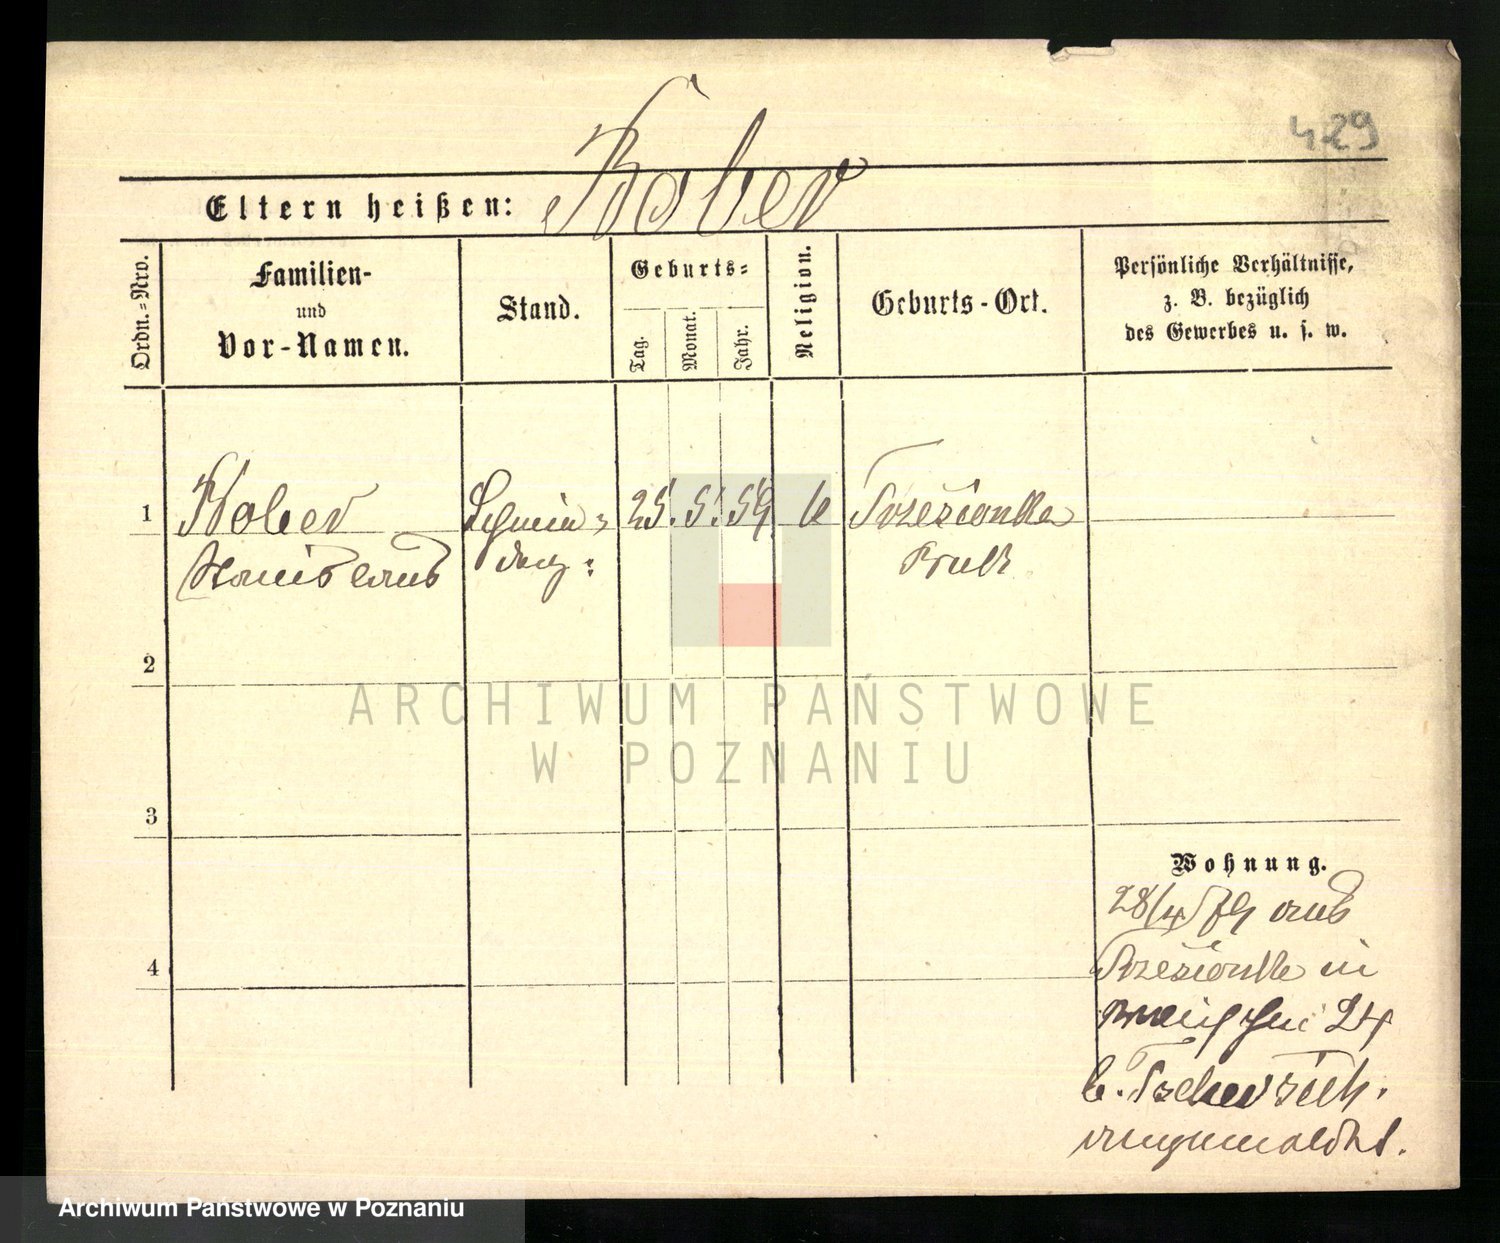 429
Eltern heißen: Kober
Ordn.=Nro.
Familien-
und
Vor-Namen.
Stand.
Geburts=
Tag.
Monat.
Jahr.
Religion.
Geburts-Ort.
Persönliche Verhältnisse,
z. B. bezüglich
des Gewerbes u. s. w.
1 Kober 25. 5. 59. k
Stanislaus
2
ARCHIWUM PAŃSTWOWE
W POZNANIU
3
Wohnung.
28/4 79 aus
4 in
24
b.
angemeldet.
Archiwum Państwowe w Poznaniu